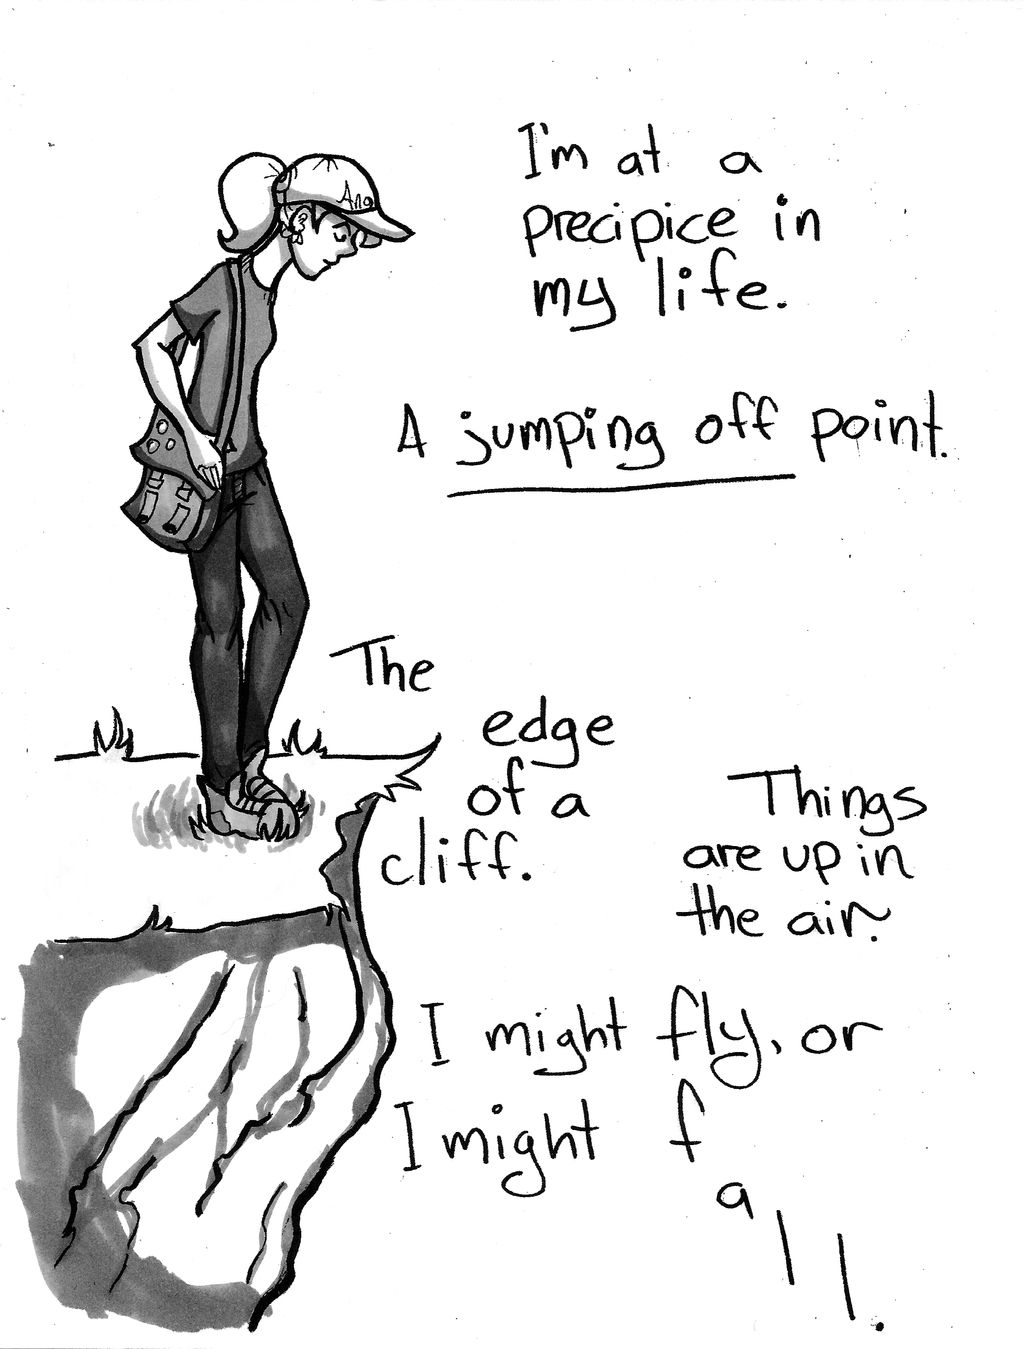 Ana
I'm at a
precipice in
my life.
A jumping off point.
The
edge
of a
cliff.
Things
are up in
the air.
I might fly, or
I might fall.